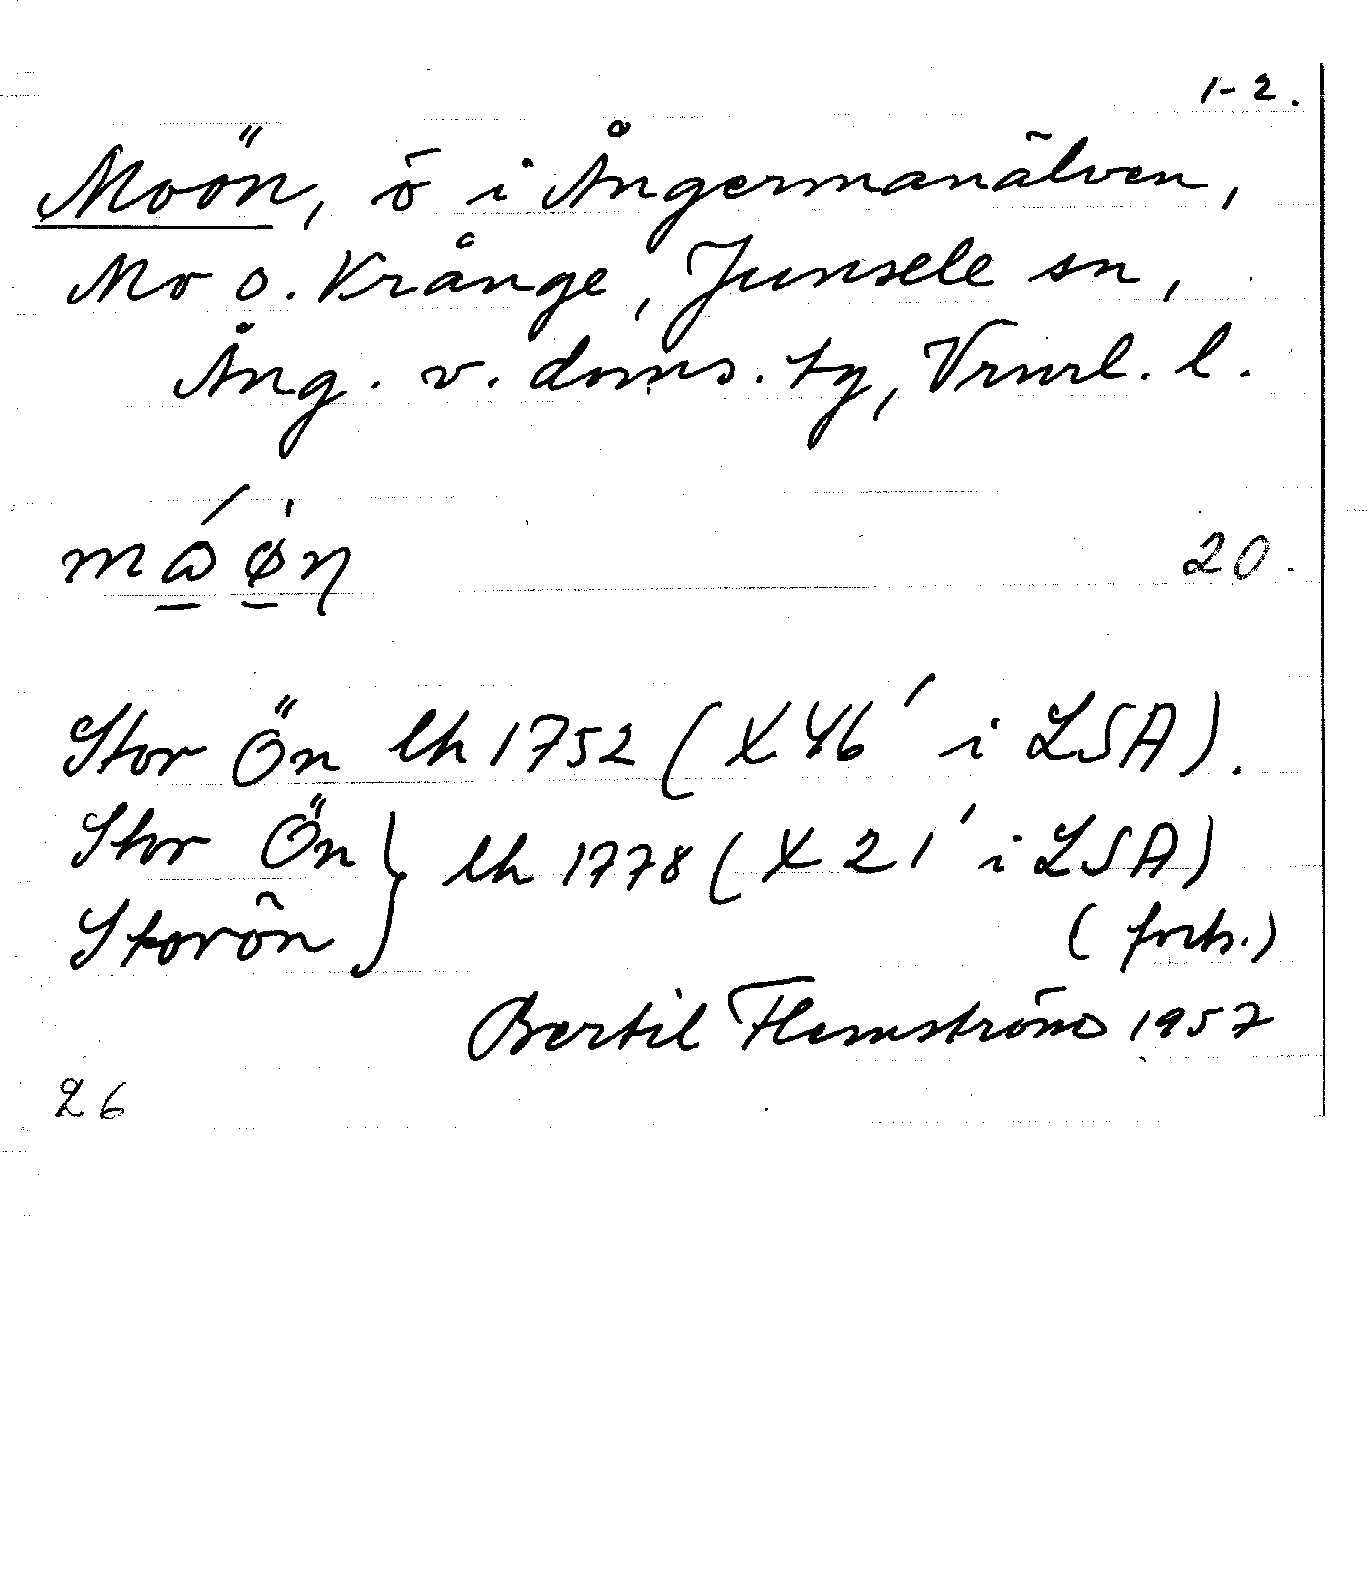 1-2.
Moön, ö i Ångermanälven,
Mo o. Krånge, Junsele sn,
Ång. v. doms. tg, Vrnrl. l.
20.
Stor Ön lh 1752 (X 46' i LSA).
Stor Ön } lh 1778 (X 21' i LSA)
Storön
(forts.)
Bertil Flemström 1957
26